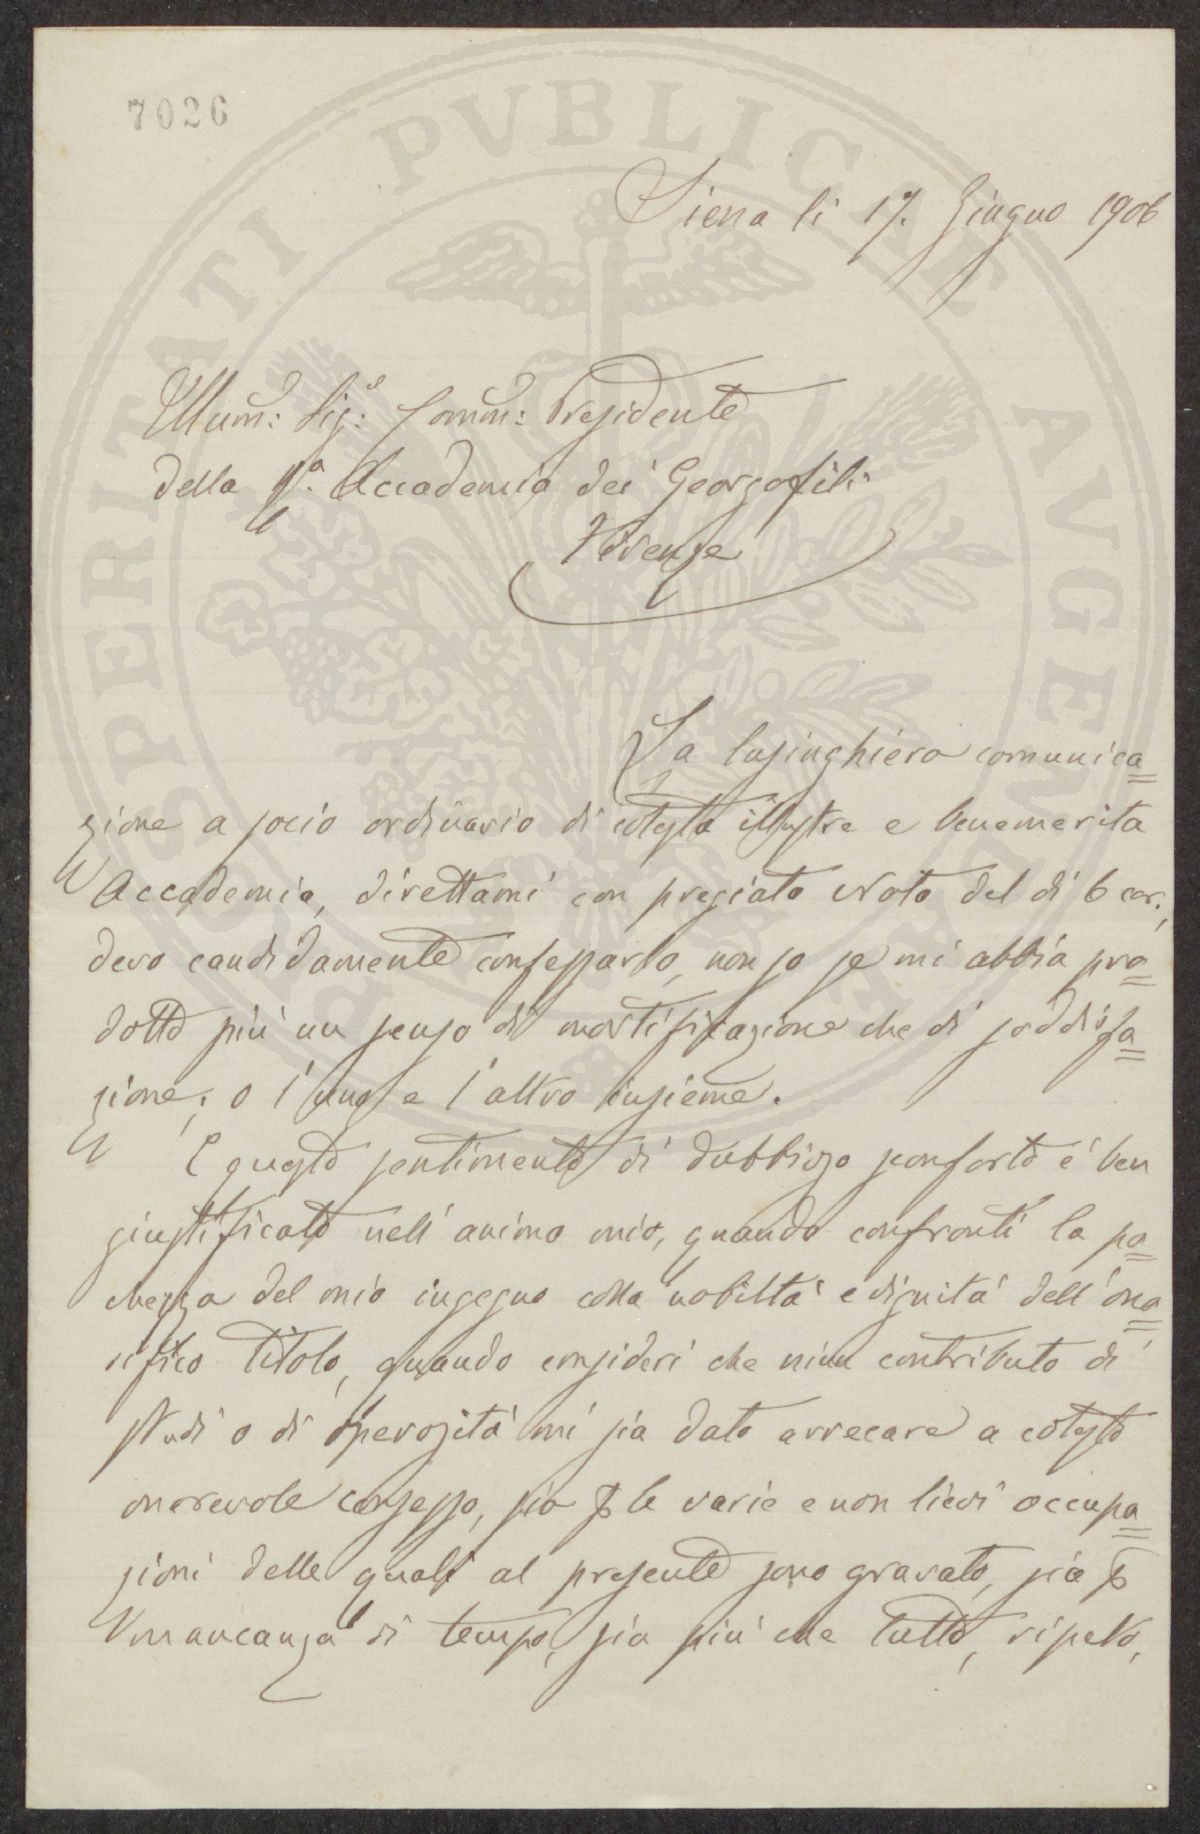 7026
PROSPERITATI PVBLICAE AVGENDAE
Siena li 17. Giugno 1906
Illum: Sig: Comm: Presidente
della Rª. Accademia dei Georgofili
Firenze
La lusinghiera comunica=
zione a socio ordinario di cotesta illustre e benemerita
Accademia, direttami con pregiata Nota del dì 6 cor:,
devo candidamente confessarlo, non so se mi abbia pro=
dotto più un senso di mortificazione che di soddisfa=
zione; o l'uno e l'altro insieme.
E questo sentimento di dubbioso sconforto é ben
giustificato nell'animo mio, quando confronti la po=
chezza del mio ingegno colla nobiltà e dignità dell'ono=
rifico titolo, quando consideri che niun contributo di
studi o di operosità mi sia dato arrecare a cotesto
onorevole consesso, sia p le varie e non lievi occupa=
zioni delle quali al presente sono gravato, sia p
mancanza di tempo, sia più che tutto, ripeto,